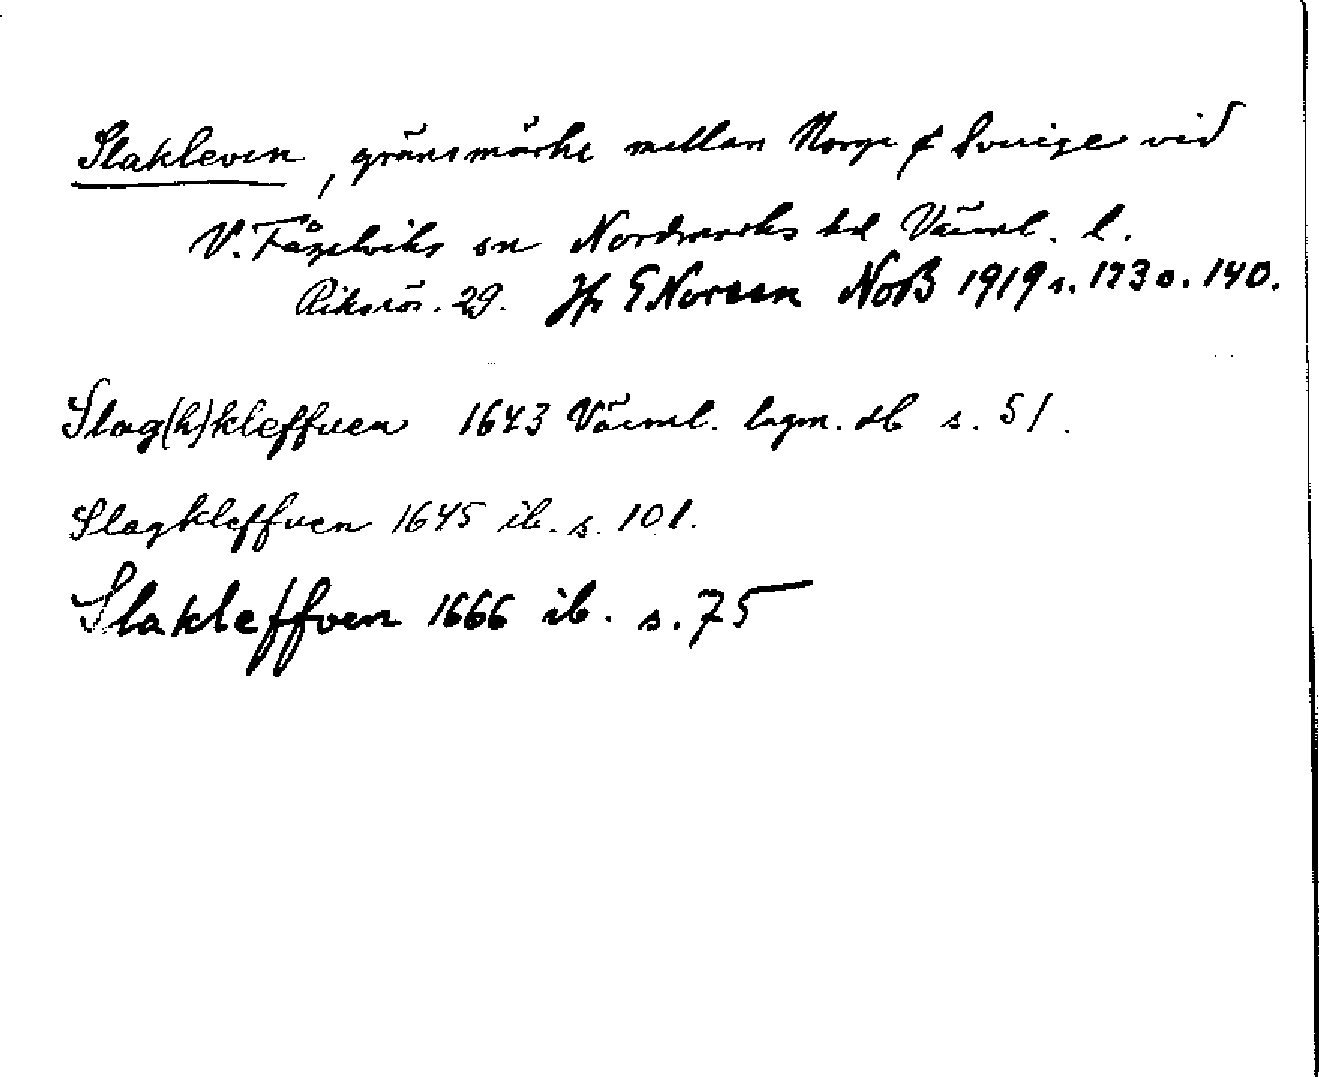 Slakleven, gränsmärke mellan Norge & Sverige vid
V. Fågelviks sn Nordmarks hd Värml. l.
Riksrös. 29. Jfr E Noreen NoB 1919 s. 123 o. 140.
Slag(h)kleffuen 1643 Värml. lagm. db s. 51.
Slagkleffuen 1645 ib. s. 101.
Slakleffven 1666 ib. s. 75